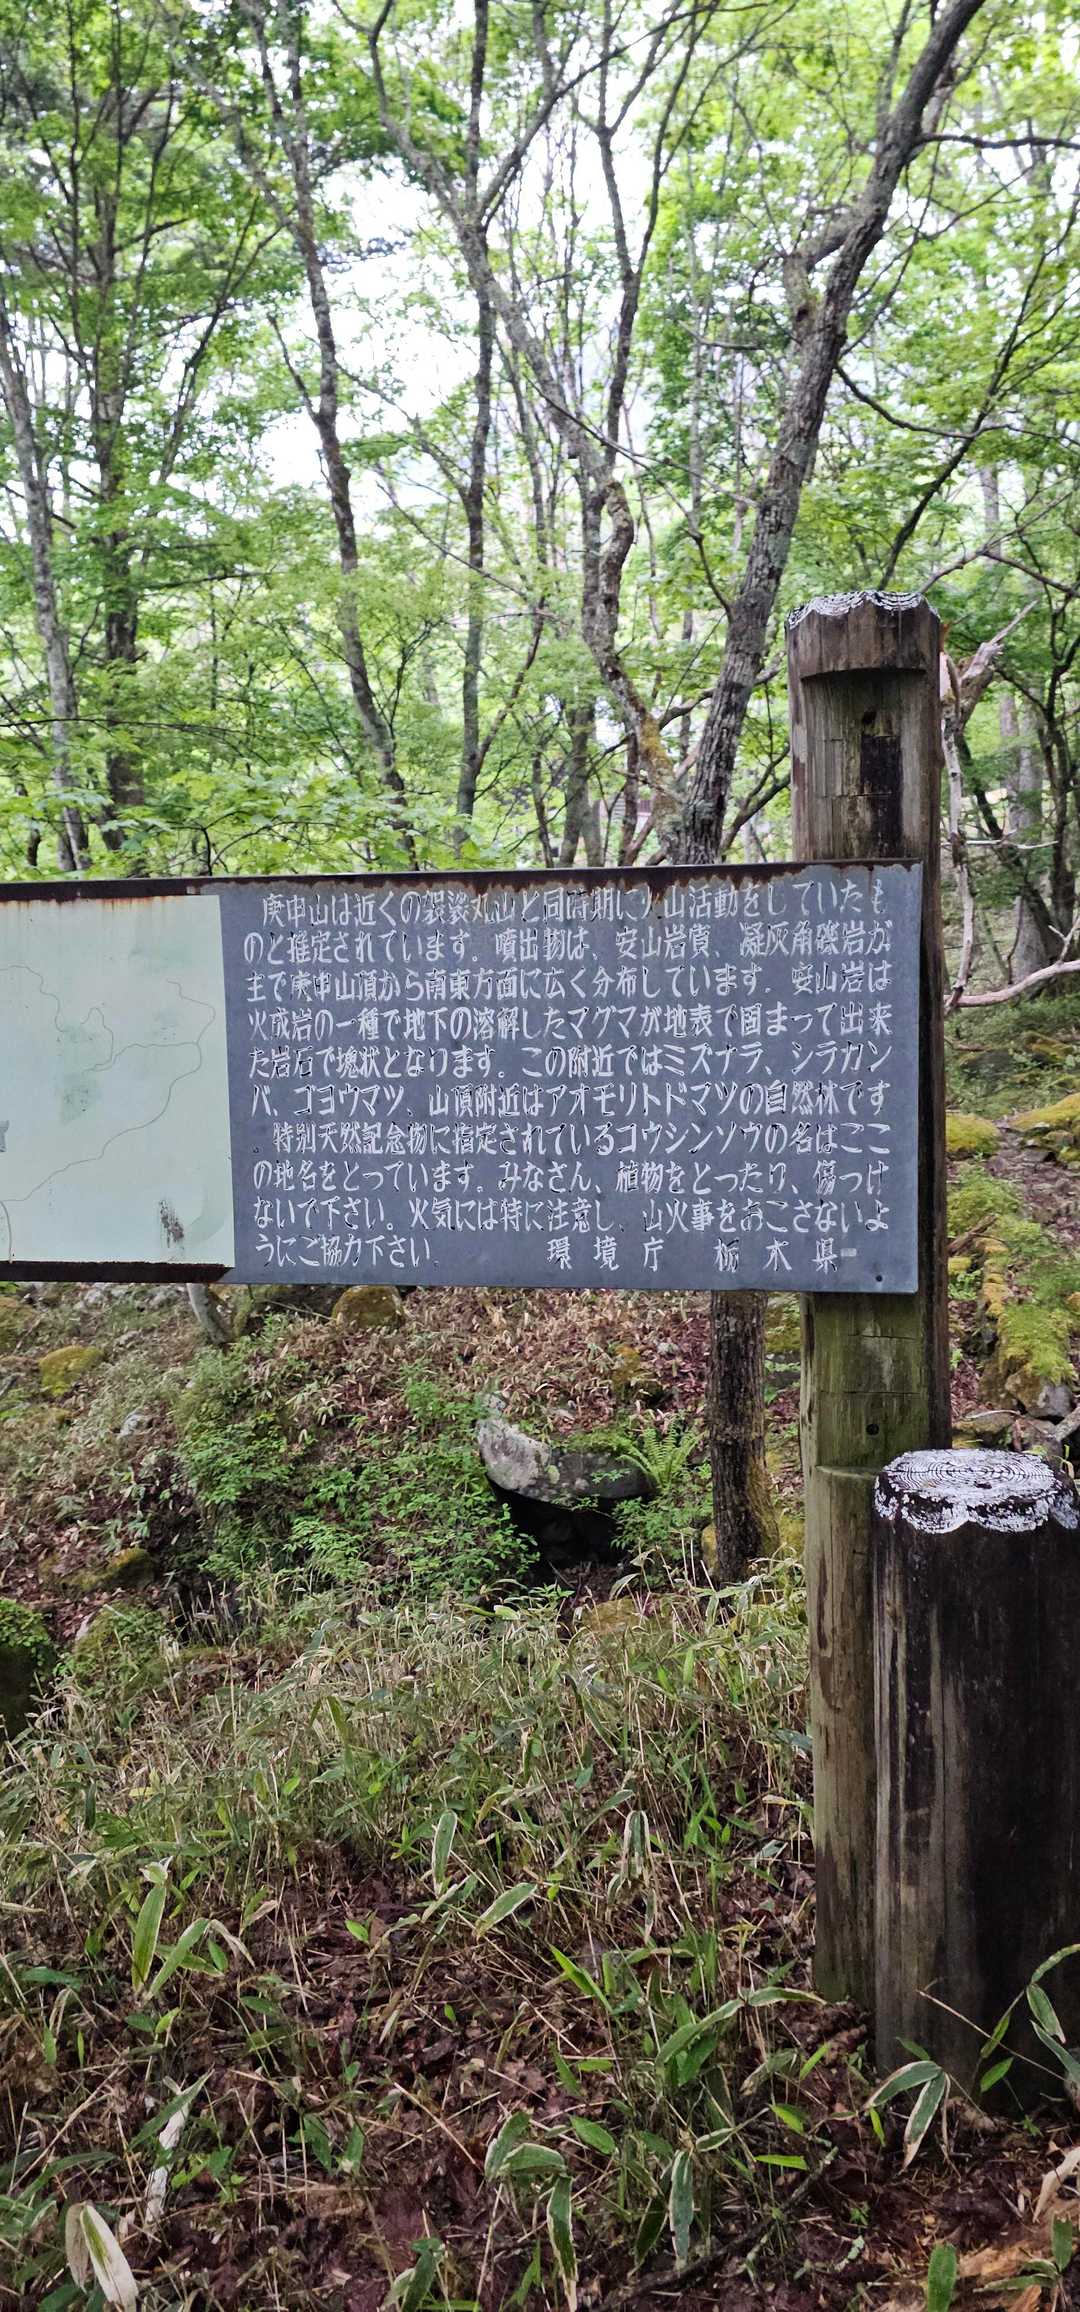 庚申山は近くの袈裟丸山と同時期に火山活動をしていたも
のと推定されています。噴出物は、安山岩質、凝灰角礫岩が
主で庚申山頂から南東方面に広く分布しています。安山岩は
火成岩の一種で地下の溶解したマグマが地表で固まって出来
た岩石で塊状となります。この附近ではミズナラ、シラカン
バ、ゴヨウマツ、山頂附近はアオモリトドマツの自然林です
。特別天然記念物に指定されているコウシンソウの名はここ
の地名をとっています。みなさん、植物をとったり、傷つけ
ないで下さい。火気には特に注意し、山火事をおこさないよ
うにご協力下さい。　　環境庁　栃木県